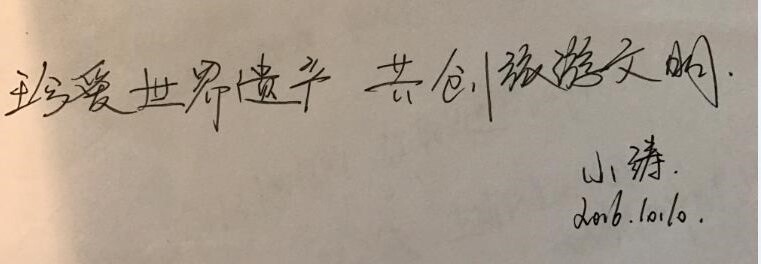 珍爱世界遗产 共创旅游文明.
小涛.
2006.10.10.